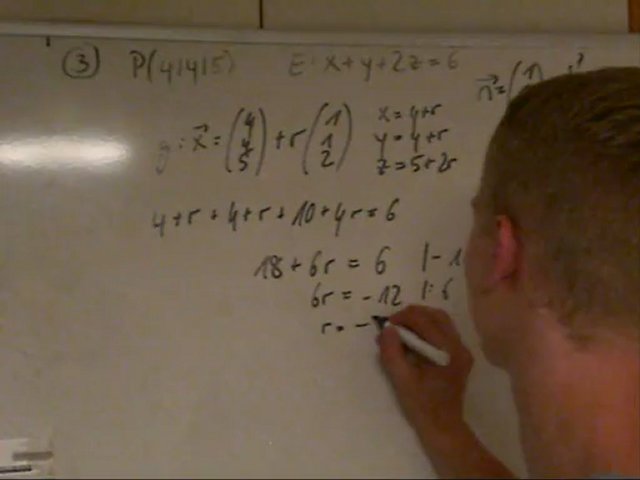 ③ P(4|4|5) E: x+y+2z=6
g: x⃗ = (4 4 5) + r (1 1 2)
x=4+r
y=4+r
z=5+2r
n⃗=(1
4+r+4+r+10+4r=6
18+6r = 6 |-1
6r = -12 |:6
r= -